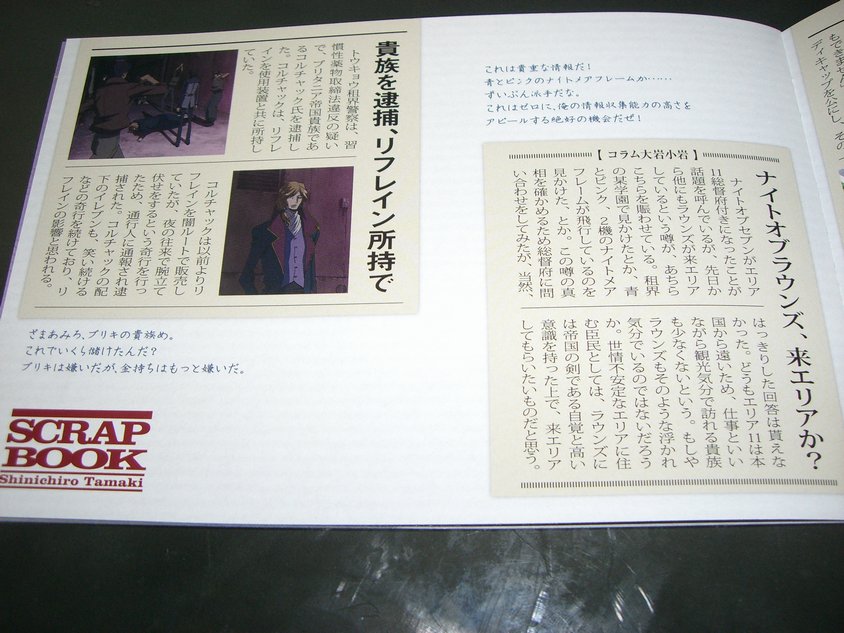 貴族を逮捕、リフレイン所持で
トウキョウ租界警察は、習
慣性薬物取締法違反の疑い
で、ブリタニア帝国貴族であ
るコルチャック氏を逮捕し
た。コルチャックは、リフレ
インを使用装置と共に所持し
ていた。
コルチャックは以前よりリ
フレインを闇ルートで販売し
ていたが、夜の往来で腕立て
伏せをするという奇行を行っ
たため、通行人に通報され逮
捕された。コルチャックの配
下のイレブンも、笑い続ける
などの奇行を続けており、リ
フレインの影響と思われる。
ざまあみろ、ブリキの貴族め。
これでいくら儲けたんだ?
ブリキは嫌いだが、金持ちはもっと嫌いだ。
SCRAP
BOOK
Shinichiro Tamaki
これは貴重な情報だ!
青とピンクのナイトメアフレームか……
ずいぶん派手だな。
これはゼロに、俺の情報収集能力の高さを
アピールする絶好の機会だぜ!
【コラム大岩小岩】
ナイトオブラウンズ、来エリアか?
ナイトオブセブンがエリア
11総督府付きになったことが
話題を呼んでいるが、先日か
ら他にもラウンズが来エリア
しているという噂が、あちら
こちらを賑わせている。租界
の某学園で見かけたとか、青
とピンク、2機のナイトメア
フレームが飛行しているのを
見かけた、とか。この噂の真
相を確かめるため総督府に問
い合わせをしてみたが、当然、
はっきりした回答は貰えな
かった。どうもエリア11は本
国から遠いため、仕事といい
ながら観光気分で訪れる貴族
も少なくないという。もしや
ラウンズもそのような浮かれ
気分でいるのではないだろう
か。世情不安定なエリアに住
む臣民としては、ラウンズに
は帝国の剣である自覚と高い
意識を持った上で、来エリア
してもらいたいものだと思う。
ディキャップを公にし、その